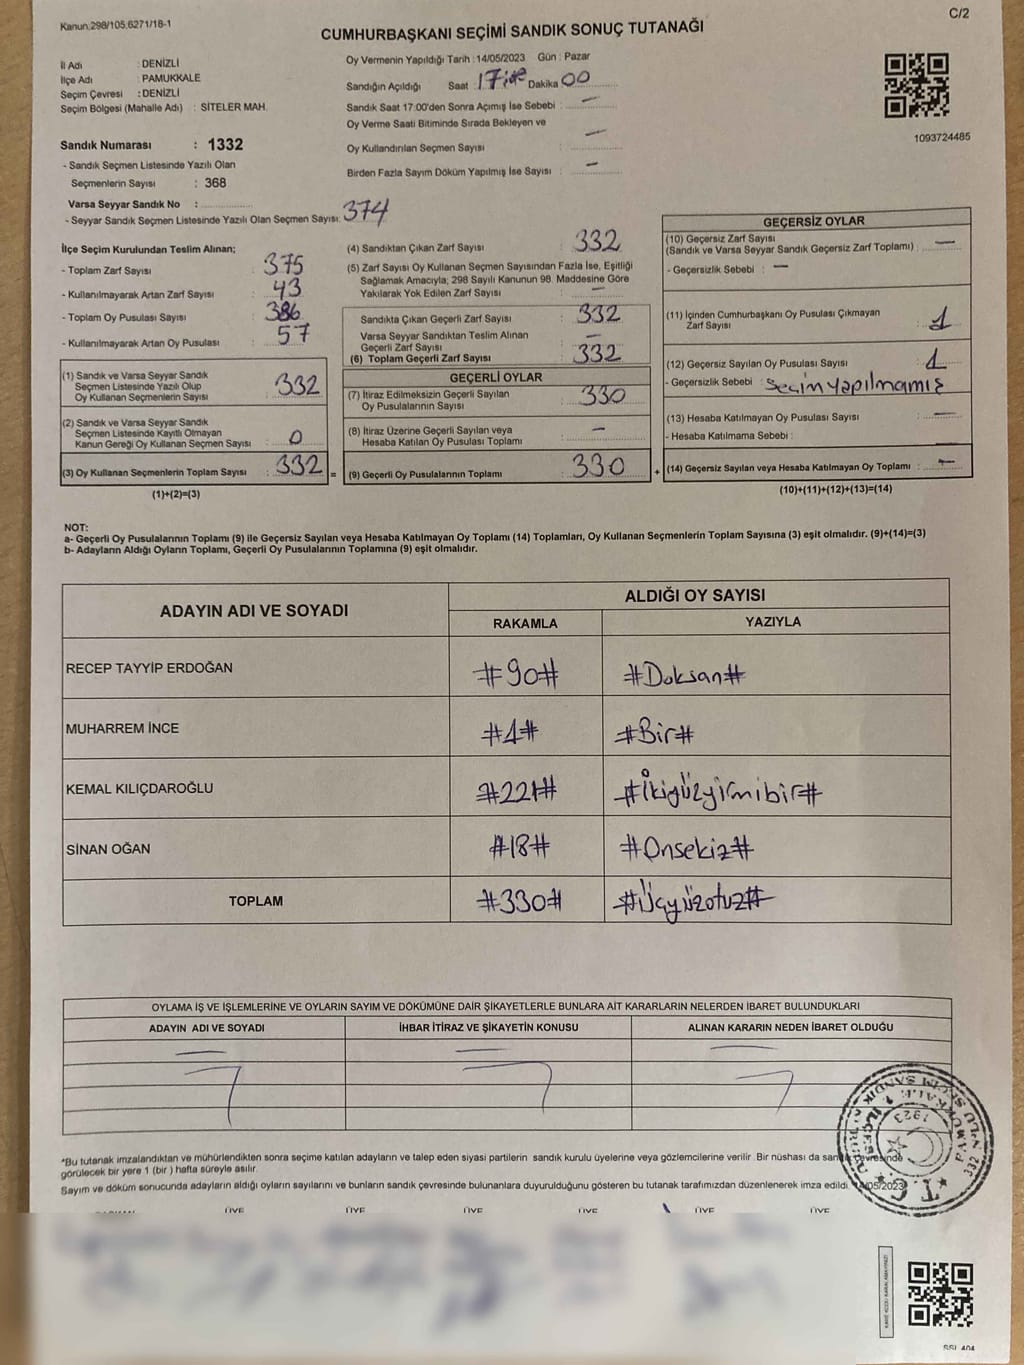 Kanun:298/105,6271/18-1
C/2
CUMHURBAŞKANI SEÇİMİ SANDIK SONUÇ TUTANAĞI
İl Adı : DENİZLİ
İlçe Adı : PAMUKKALE
Seçim Çevresi : DENİZLİ
Seçim Bölgesi (Mahalle Adı) : SİTELER MAH.
Sandık Numarası : 1332
- Sandık Seçmen Listesinde Yazılı Olan
Seçmenlerin Sayısı : 368
Varsa Seyyar Sandık No :
- Seyyar Sandık Seçmen Listesinde Yazılı Olan Seçmen Sayısı: 374
Oy Vermenin Yapıldığı Tarih : 14/05/2023 Gün : Pazar
Sandığın Açıldığı Saat : 17 Dakika 00
Sandık Saat 17:00'den Sonra Açımış İse Sebebi : —
Oy Verme Saati Bitiminde Sırada Bekleyen ve
Oy Kullandırılan Seçmen Sayısı : —
Birden Fazla Sayım Döküm Yapılmış İse Sayısı : —
1093724485
İlçe Seçim Kurulundan Teslim Alınan;
- Toplam Zarf Sayısı : 375
- Kullanılmayarak Artan Zarf Sayısı : 43
- Toplam Oy Pusulası Sayısı : 386
- Kullanılmayarak Artan Oy Pusulası : 57
(1) Sandık ve Varsa Seyyar Sandık
Seçmen Listesinde Yazılı Olup
Oy Kullanan Seçmenlerin Sayısı : 332
(2) Sandık ve Varsa Seyyar Sandık
Seçmen Listesinde Kayıtlı Olmayan
Kanun Gereği Oy Kullanan Seçmen Sayısı : 0
(3) Oy Kullanan Seçmenlerin Toplam Sayısı : 332 =
(1)+(2)=(3)
(4) Sandıktan Çıkan Zarf Sayısı : 332
(5) Zarf Sayısı Oy Kullanan Seçmen Sayısından Fazla İse, Eşitliği
Sağlamak Amacıyla; 298 Sayılı Kanunun 98. Maddesine Göre
Yakılarak Yok Edilen Zarf Sayısı : —
Sandıkta Çıkan Geçerli Zarf Sayısı : 332
Varsa Seyyar Sandıktan Teslim Alınan
Geçerli Zarf Sayısı : —
(6) Toplam Geçerli Zarf Sayısı : 332
GEÇERLİ OYLAR
(7) İtiraz Edilmeksizin Geçerli Sayılan
Oy Pusulalarının Sayısı : 330
(8) İtiraz Üzerine Geçerli Sayılan veya
Hesaba Katılan Oy Pusulası Toplamı : —
(9) Geçerli Oy Pusulalarının Toplamı : 330 +
GEÇERSİZ OYLAR
(10) Geçersiz Zarf Sayısı
(Sandık ve Varsa Seyyar Sandık Geçersiz Zarf Toplamı) : —
- Geçersizlik Sebebi : —
(11) İçinden Cumhurbaşkanı Oy Pusulası Çıkmayan
Zarf Sayısı : 1
(12) Geçersiz Sayılan Oy Pusulası Sayısı : 1
- Geçersizlik Sebebi : Seçim yapılmamış
(13) Hesaba Katılmayan Oy Pusulası Sayısı : —
- Hesaba Katılmama Sebebi : —
(14) Geçersiz Sayılan veya Hesaba Katılmayan Oy Toplamı :
(10)+(11)+(12)+(13)=(14)
NOT:
a- Geçerli Oy Pusulalarının Toplamı (9) ile Geçersiz Sayılan veya Hesaba Katılmayan Oy Toplamı (14) Toplamları, Oy Kullanan Seçmenlerin Toplam Sayısına (3) eşit olmalıdır. (9)+(14)=(3)
b- Adayların Aldığı Oyların Toplamı, Geçerli Oy Pusulalarının Toplamına (9) eşit olmalıdır.
ADAYIN ADI VE SOYADI
ALDIĞI OY SAYISI
RAKAMLA YAZIYLA
RECEP TAYYİP ERDOĞAN #90# #Doksan#
MUHARREM İNCE #1# #Bir#
KEMAL KILIÇDAROĞLU #221# #İkiyüzyirmibir#
SİNAN OĞAN #18# #Onsekiz#
TOPLAM #330# #Üçyüzotuz#
OYLAMA İŞ VE İŞLEMLERİNE VE OYLARIN SAYIM VE DÖKÜMÜNE DAİR ŞİKAYETLERLE BUNLARA AİT KARARLARIN NELERDEN İBARET BULUNDUKLARI
ADAYIN ADI VE SOYADI İHBAR İTİRAZ VE ŞİKAYETİN KONUSU ALINAN KARARIN NEDEN İBARET OLDUĞU
*Bu tutanak imzalandıktan ve mühürlendikten sonra seçime katılan adayların ve talep eden siyasi partilerin sandık kurulu üyelerine veya gözlemcilerine verilir. Bir nüshası da sandık çevresinde
görülecek bir yere 1 (bir ) hafta süreyle asılır.
Sayım ve döküm sonucunda adayların aldığı oyların sayılarını ve bunların sandık çevresinde bulunanlara duyurulduğunu gösteren bu tutanak tarafımızdan düzenlenerek imza edildi. 14/05/2023
T.C.
1923
ÜYE ÜYE ÜYE ÜYE ÜYE ÜYE